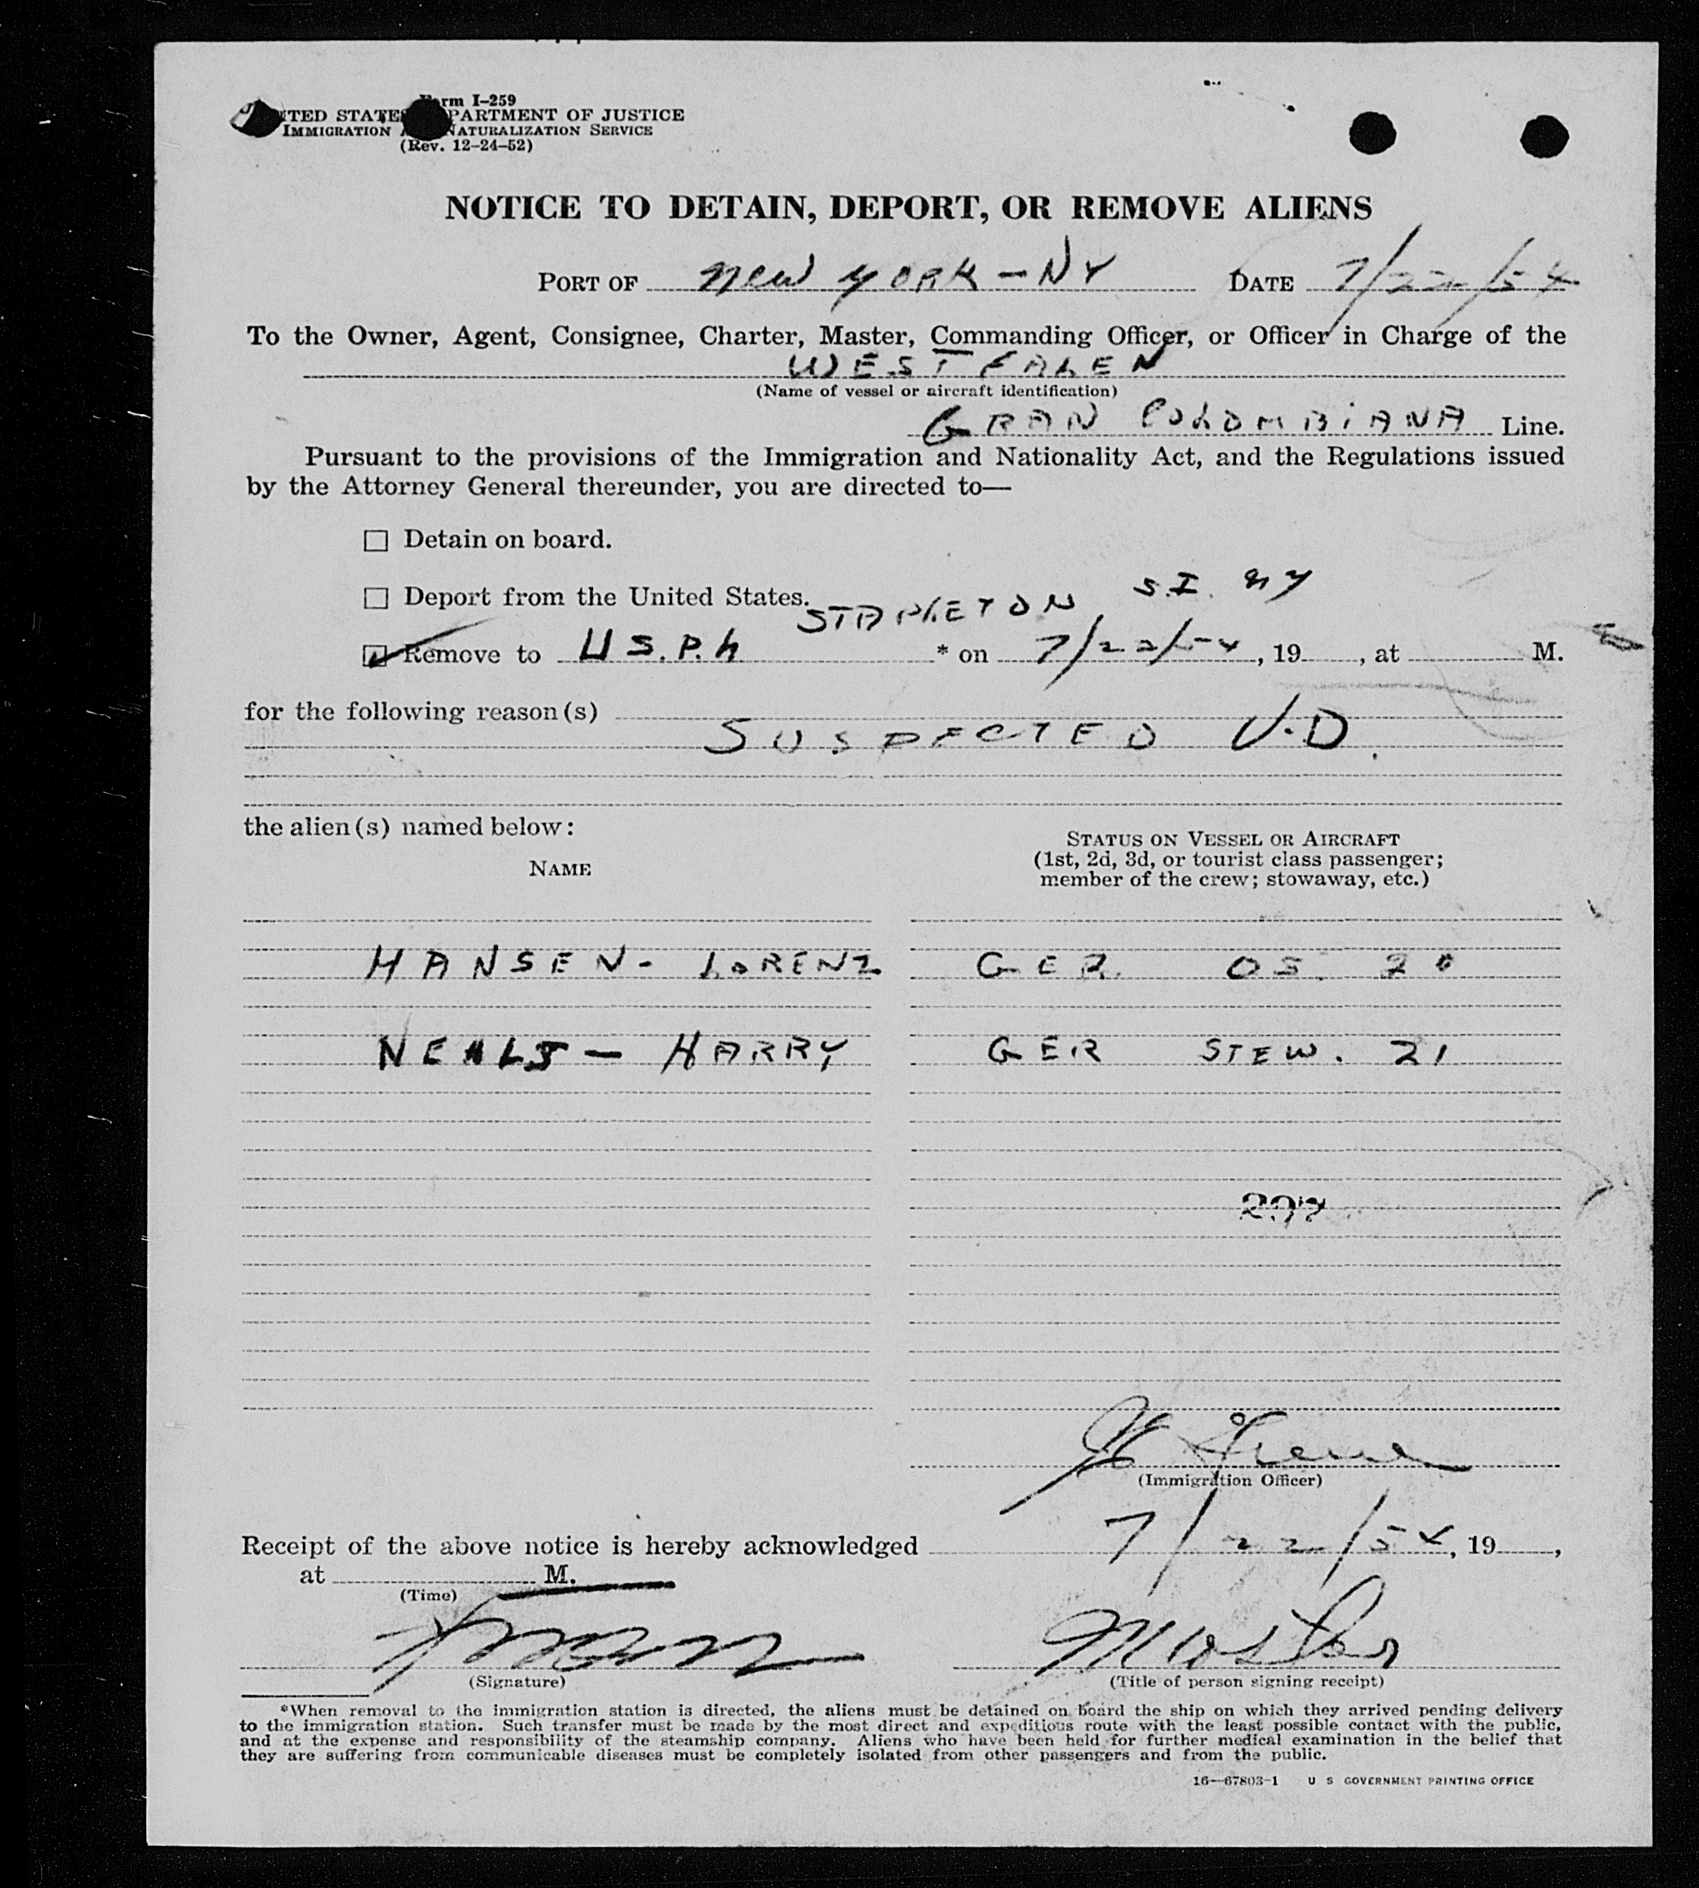 Form I-259
UNITED STATES DEPARTMENT OF JUSTICE
IMMIGRATION AND NATURALIZATION SERVICE
(Rev. 12-24-52)
NOTICE TO DETAIN, DEPORT, OR REMOVE ALIENS
PORT OF New York - NY DATE 7/22/54
To the Owner, Agent, Consignee, Charter, Master, Commanding Officer, or Officer in Charge of the
WESTFALEN
(Name of vessel or aircraft identification)
GRAN COLOMBIANA Line.
Pursuant to the provisions of the Immigration and Nationality Act, and the Regulations issued
by the Attorney General thereunder, you are directed to—
☐ Detain on board.
☐ Deport from the United States.
STAPLETON S.I. NY
☑ Remove to U S. P. H * on 7/22/54, 19, at M.
for the following reason(s)
SUSPECTED V.D.
the alien(s) named below:
NAME
STATUS ON VESSEL OR AIRCRAFT
(1st, 2d, 3d, or tourist class passenger;
member of the crew; stowaway, etc.)
HANSEN - LORENZ GER. OS. 20
NEHLS - HARRY GER STEW. 21
(Immigration Officer)
Receipt of the above notice is hereby acknowledged 7/22/54, 19,
at M.
(Time)
Master
(Signature) (Title of person signing receipt)
*When removal to the immigration station is directed, the aliens must be detained on board the ship on which they arrived pending delivery
to the immigration station. Such transfer must be made by the most direct and expeditious route with the least possible contact with the public,
and at the expense and responsibility of the steamship company. Aliens who have been held for further medical examination in the belief that
they are suffering from communicable diseases must be completely isolated from other passengers and from the public.
16—67803-1 U S GOVERNMENT PRINTING OFFICE